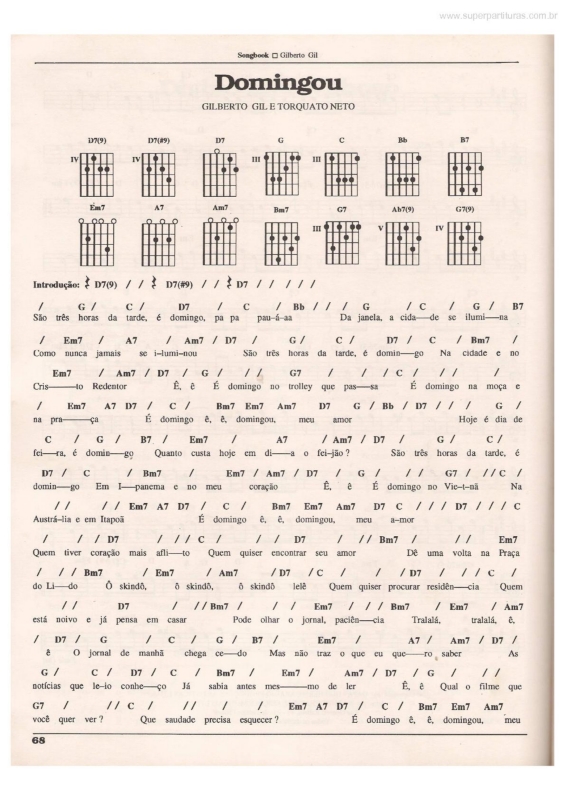 www.superpartituras.com.br
Songbook □ Gilberto Gil
Domingou
GILBERTO GIL E TORQUATO NETO
D7(9) D7(#9) D7 G C Bb B7
IV IV III III
Em7 A7 Am7 Bm7 G7 Ab7(9) G7(9)
III V IV
Introdução: D7(9) / / D7(#9) / / D7 / / / / /
/ G / C / D7 / C / Bb / / / G / C / G / B7
São três horas da tarde, é domingo, pa pa pau-á-aa Da janela, a cida—de se ilumi—na
/ Em7 / A7 / Am7 / D7 / G / C / D7 / C / Bm7 /
Como nunca jamais se i-lumi-nou São três horas da tarde, é domin—go Na cidade e no
Em7 / Am7 / D7 / G / / / G7 / / / C / / / /
Cris——to Redentor Ê, ê É domingo no trolley que pas—sa É domingo na moça e
/ Em7 A7 D7 / C / Bm7 Em7 Am7 D7 G / Bb / D7 / / / G /
na pra——ça É domingo ê, ê, domingou, meu amor Hoje é dia de
C / G / B7 / Em7 / A7 / Am7 / D7 / G / C /
fei—ra, é domin—go Quanto custa hoje em di—a o fei-jão? São três horas da tarde, é
D7 / C / Bm7 / Em7 / Am7 / D7 / G / / / G7 / / / C /
domin—go Em I—panema e no meu coração Ê, ê É domingo no Vie-t-nã Na
/ / / / Em7 A7 D7 / C / Bm7 Em7 Am7 D7 C / / / D7 / / / C
Austrá-lia e em Itapoã É domingo ê, ê, domingou, meu a-mor
/ / / D7 / / / C / / / D7 / / / Bm7 / / / Em7
Quem tiver coração mais afli—to Quem quiser encontrar seu amor Dê uma volta na Praça
/ / / Bm7 / Em7 / Am7 / D7 / C / / / D7 / / / C /
do Li—do Ô skindô, ô skindô, ô skindô lelê Quem quiser procurar residên—cia Quem
/ / D7 / / / Bm7 / / / Em7 / / / Bm7 / Em7 / Am7
está noivo e já pensa em casar Pode olhar o jornal, paciên—cia Tralalá, tralalá, ê,
/ D7 / G / C / G / B7 / Em7 / A7 / Am7 / D7 /
ê O jornal de manhã chega ce—do Mas não traz o que eu que—ro saber As
G / C / D7 / C / Bm7 / Em7 / Am7 / D7 / G / / /
notícias que le-io conhe—ço Já sabia antes mes——mo de ler Ê, ê Qual o filme que
G7 / / / C / / / / / Em7 A7 D7 / C / Bm7 Em7 Am7
você quer ver? Que saudade precisa esquecer? É domingo ê, ê, domingou, meu
68